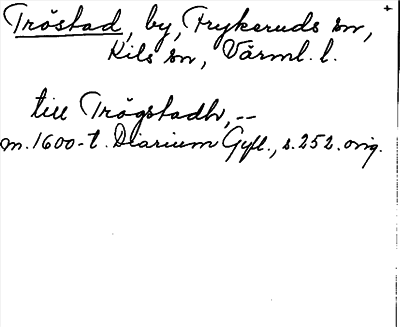 Tröstad, by, Frykeruds sn,
Kils sn, Värml. l.
till Trögstadh, --
m. 1600-t. Diarium Gyll., s. 252. orig.